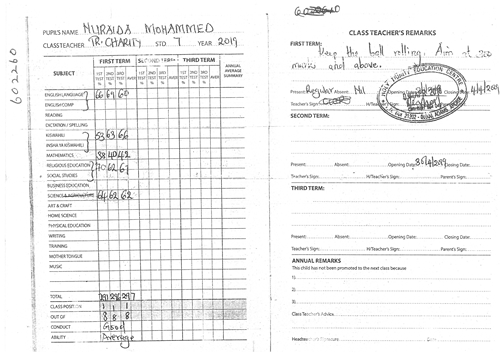 602260
PUPIL'S NAME NURAIDA MOHAMMED
CLASS TEACHER TR. CHARITY STD 7 YEAR 2019
SUBJECT FIRST TERM SECOND TERM THIRD TERM ANNUAL AVERAGE SUMMARY
1ST TEST % 2ND TEST % 3RD TEST % AVER 1ST TEST % 2ND TEST % 3RD TEST % AVER 1ST TEST % 2ND TEST % 3RD TEST % AVER
ENGLISH LANGUAGE 66 69 60
ENGLISH COMP
READING
DICTATION / SPELLING
KISWAHILI 53 63 66
INSHA YA KISWAHILI
MATHEMATICS 38 40 42
RELIGIOUS EDUCATION 70 62 67
SOCIAL STUDIES
BUSINESS EDUCATION
SCIENCE & AGRICULTURE 64 62 62
ART & CRAFT
HOME SCIENCE
PHYSICAL EDUCATION
WRITING
TRAINING
MOTHER TONGUE
MUSIC
TOTAL 291 296 297
CLASS POSITION 1 1 1
OUT OF 8 8 8
CONDUCT Good
ABILITY Average
CLASS TEACHER'S REMARKS
FIRST TERM: Keep the ball rolling. Aim at 300
marks and above.
Present: Regular Absent: Nil 4/4/2019
Teacher's Sign:
HOLY TRINITY EDUCATION CENTRE
SECOND TERM:
Present: Absent: Opening Date: Closing Date:
Teacher's Sign: H/Teacher's Sign: Parent's Sign:
THIRD TERM:
Present: Absent: Opening Date: Closing Date:
Teacher's Sign: H/Teacher's Sign: Parent's Sign:
ANNUAL REMARKS
This child has not been promoted to the next class because
1).
2).
3).
Class Teacher's Advice
Headteacher's Signature Date